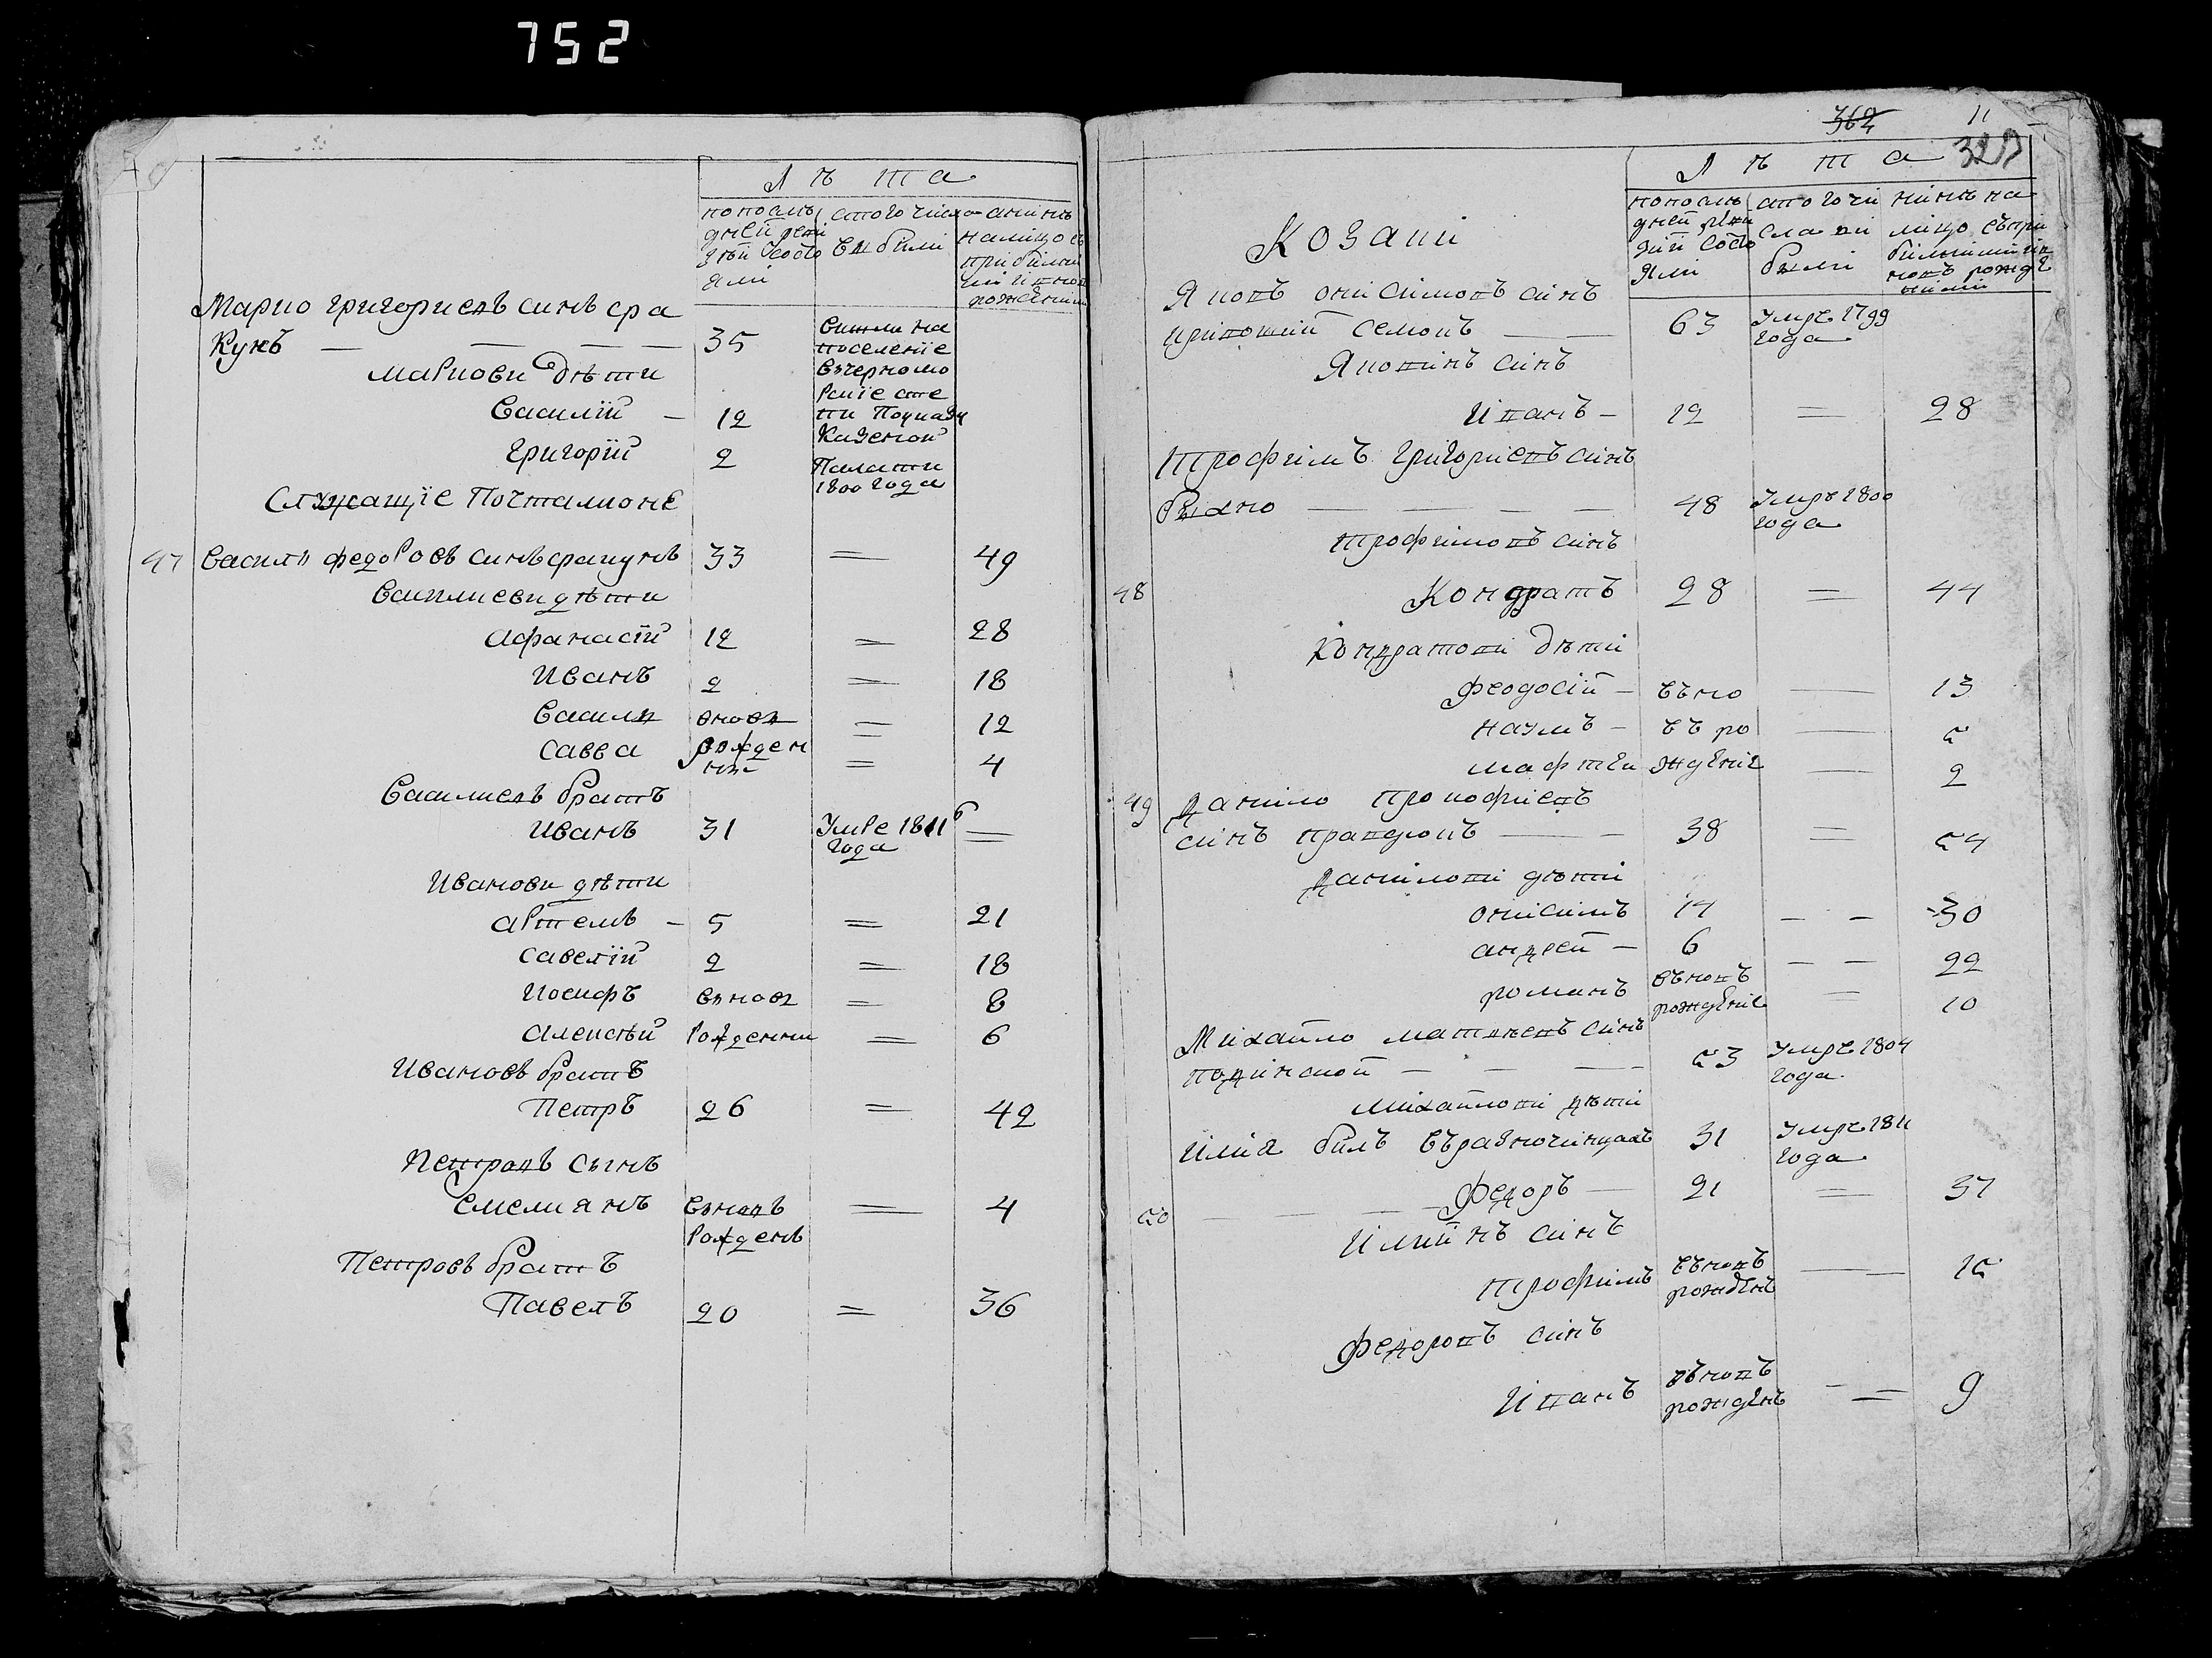 752
Лѣта
по послѣдней ревизіи состояли
из того числа выбыли
а нинѣ на лицо съ прибылыми и вновь рожденними
Марко григориевъ синъ сра
кунъ — — — — 35
Сишли на поселеніе в черноморские степи По указу Казеной Палати 1800 года
Марковы дѣти
Василій — 12
Григорій 2
Служащіе Почталионе
47 Василь федоровъ синъ сракунъ 33 = 49
Василиеви дѣти
Афанасій 12 = 28
Иванъ 2 = 18
Василь вновь = 12
Савва рожденние = 4
Василиевъ братъ
Иванъ 31 Умре 1811 6 года =
Иванови дѣти
Артемъ — 5 = 21
Савелій 2 = 18
Иосифъ вновь = 8
Алексѣй Рожденни = 6
Ивановъ братъ
Петръ 26 = 42
Петровъ сынъ
Емелиянъ вновъ Рожденъ = 4
Петровъ братъ
Павелъ 20 = 36
362 11
320
Лѣта
по послѣдней ревизій состояли
с того числа вибыли
нинѣ на лицо съ прибылими и вновъ рожденими
Козаки
Яковъ онисимовъ синъ
кривоший семонъ — 63 Умре 1799 года
Яковинъ синъ
Иванъ — 12 = 28
Трофимъ григориевъ синъ
быхно — — — — 48 Умре 1800 года
Трофимовъ синъ
48 Кондратъ 28 = 44
Кондратови дѣти
Феодосій — въно — 13
Наумъ — въ ро — 5
Мафтеи ждение — 2
49 Данило прокофиевъ
синъ правдюкъ — — 38 = 54
Данилови дѣти
онисимъ 14 — — 30
андрей — 6 — — 22
романъ въновъ рождение = 10
Михайло матвѣевъ синъ
подинской — — — 53 Умре 1804 года
Михайлови дѣти
Илия билъ въ разночинцахъ 31 Умре 1811 года
50 — — — Федоръ — 21 = 37
Илиинъ синъ
трофимъ въновъ рожденъ — 15
Федоровъ синъ
Иванъ въновъ рожденъ = 9